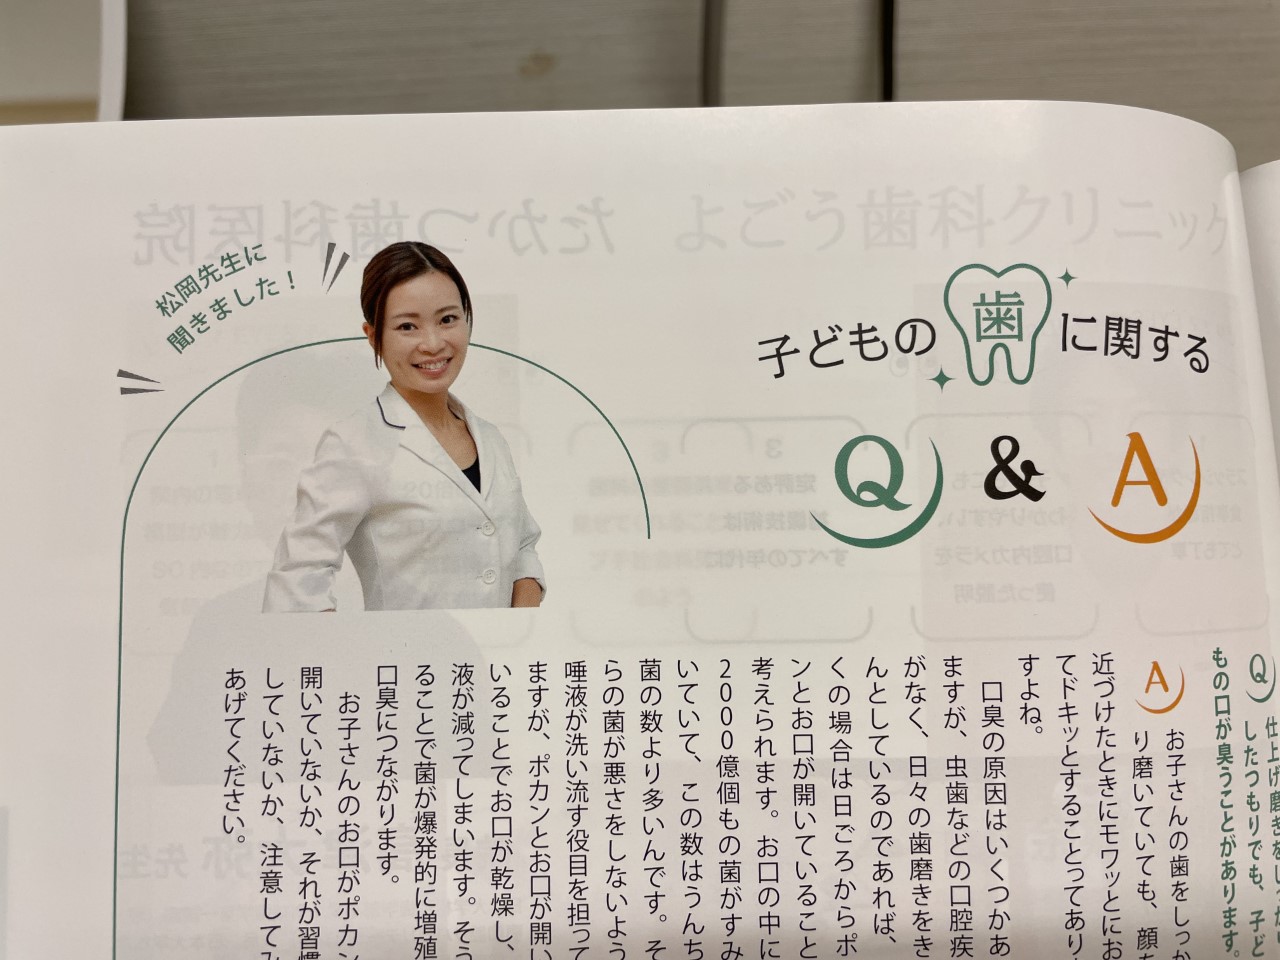 松岡先生に
聞きました！
子どもの歯に関する
Q & A
Q 仕上げ磨きをしっかり
したつもりでも、子ど
もの口が臭うことがあります。
A お子さんの歯をしっか
り磨いていても、顔を
近づけたときにモワッとにお
ってドキッとすることってあり
すよね。
口臭の原因はいくつかあ
ますが、虫歯などの口腔疾
がなく、日々の歯磨きをき
んとしているのであれば、
くの場合は日ごろからポ
ンとお口が開いていること
考えられます。お口の中に
2000億個もの菌がすみ
いていて、この数はうんち
菌の数より多いんです。そ
らの菌が悪さをしないよう
唾液が洗い流す役目を担って
ますが、ポカンとお口が開い
いることでお口が乾燥し、
液が減ってしまいます。そう
ることで菌が爆発的に増殖
口臭につながります。
お子さんのお口がポカン
開いていないか、それが習慣
していないか、注意してみ
あげてください。
よごう歯科クリニック
たかつ歯科医院